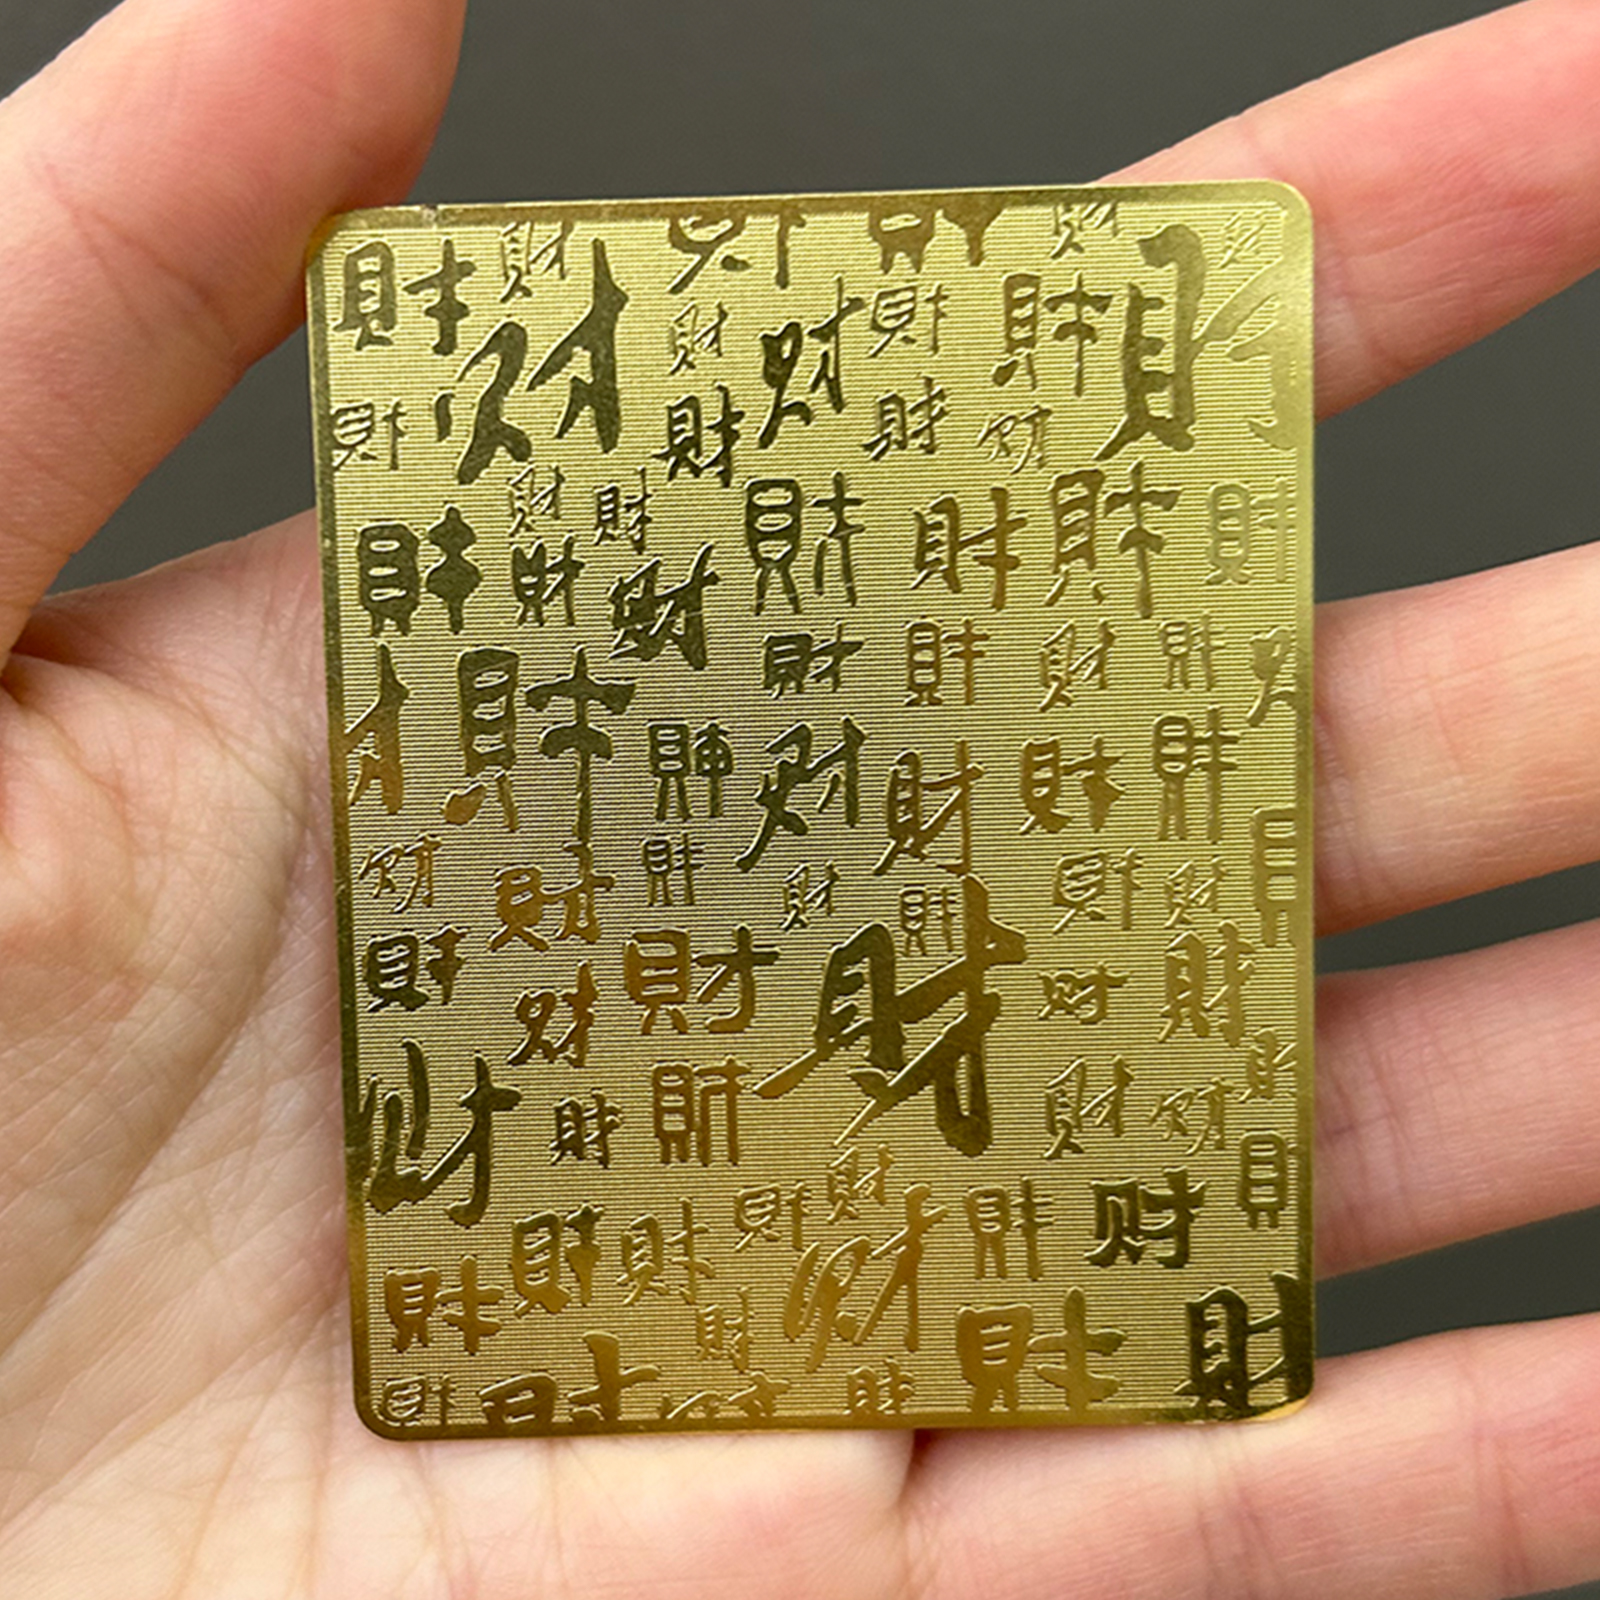 財 財 財 財 財
財 財 財 財 財 財 財
財 財 財 財
財 財 財 財 財 財
財 財 財 財 財 財
財 財 財 財 財 財
財 財 財 財 財 財
財 財 財 財 財 財
財 財 財 財 財
財 財 財 財 財
財 財 財 財 财
財 財 財 財 財
財 財